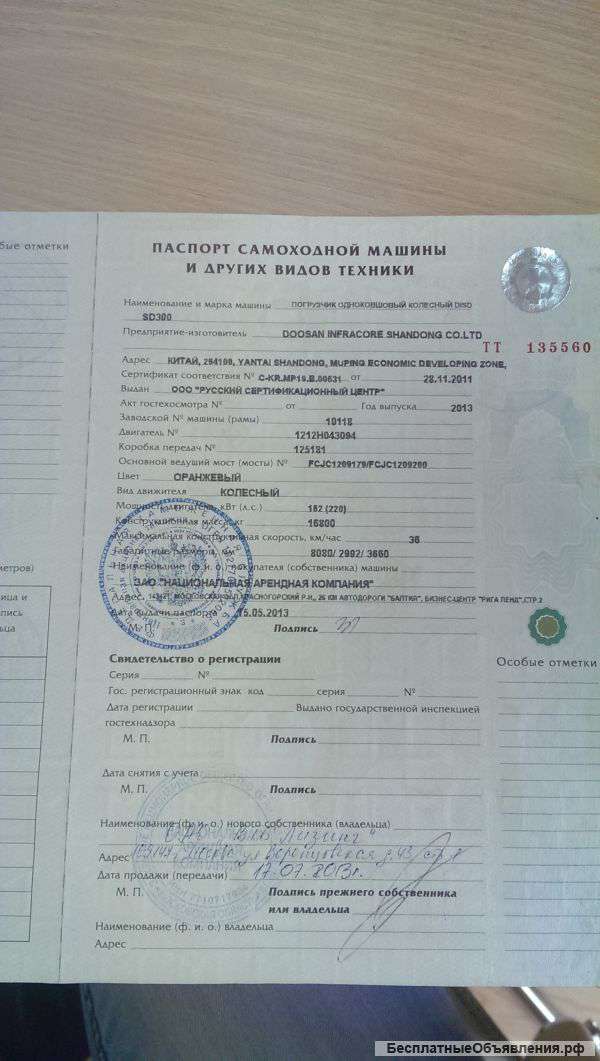 бые отметки
ПАСПОРТ САМОХОДНОЙ МАШИНЫ
И ДРУГИХ ВИДОВ ТЕХНИКИ
Наименование и марка машины ПОГРУЗЧИК ОДНОКОВШОВЫЙ КОЛЕСНЫЙ DISD
SD300
Предприятие-изготовитель DOOSAN INFRACORE SHANDONG CO.LTD
ТТ 135560
Адрес КИТАЙ, 264100, YANTAI SHANDONG, MUPING ECONOMIC DEVELOPING ZONE,
Сертификат соответствия № C-KR.MP19.B.00631 от 28.11.2011
Выдан ООО "РУССКИЙ СЕРТИФИКАЦИОННЫЙ ЦЕНТР"
Акт гостехосмотра № от Год выпуска 2013
Заводской № машины (рамы) 10118
Двигатель № 1212H043094
Коробка передач № 125181
Основной ведущий мост (мосты) № FCJC1209179/FCJC1209200
Цвет ОРАНЖЕВЫЙ
Вид движителя КОЛЕСНЫЙ
Мощность двигателя, кВт (л.с.) 162 (220)
Конструкционная масса, кг 16800
Максимальная конструктивная скорость, км/час 36
Габаритные размеры, мм 8080/ 2992/ 3660
Наименование (ф. и. о.) покупателя (собственника) машины
ЗАО "НАЦИОНАЛЬНАЯ АРЕНДНАЯ КОМПАНИЯ"
Адрес МОСКОВСКАЯ КРАСНОГОРСКИЙ Р-Н, 26 КМ АВТОДОРОГИ "БАЛТИЯ", БИЗНЕС-ЦЕНТР "РИГА ЛЕНД", СТР.2
Дата выдачи паспорта 15.05.2013
М. П. Подпись
Свидетельство о регистрации
Особые отметки
Серия № 
Гос. регистрационный знак код серия №
Дата регистрации Выдано государственной инспекцией
гостехнадзора
М. П. Подпись
Дата снятия с учета
М. П. Подпись
Наименование (ф. и. о.) нового собственника (владельца)
Лизинг"
Адрес 109147 Москва ул Воронцовская д. 43 стр 1
Дата продажи (передачи) 17.07.2013г.
М. П. Подпись прежнего собственника
или владельца
Наименование (ф. и. о.) владельца
Адрес
метров)
лица и
пись
ьца
БесплатныеОбъявления.рф